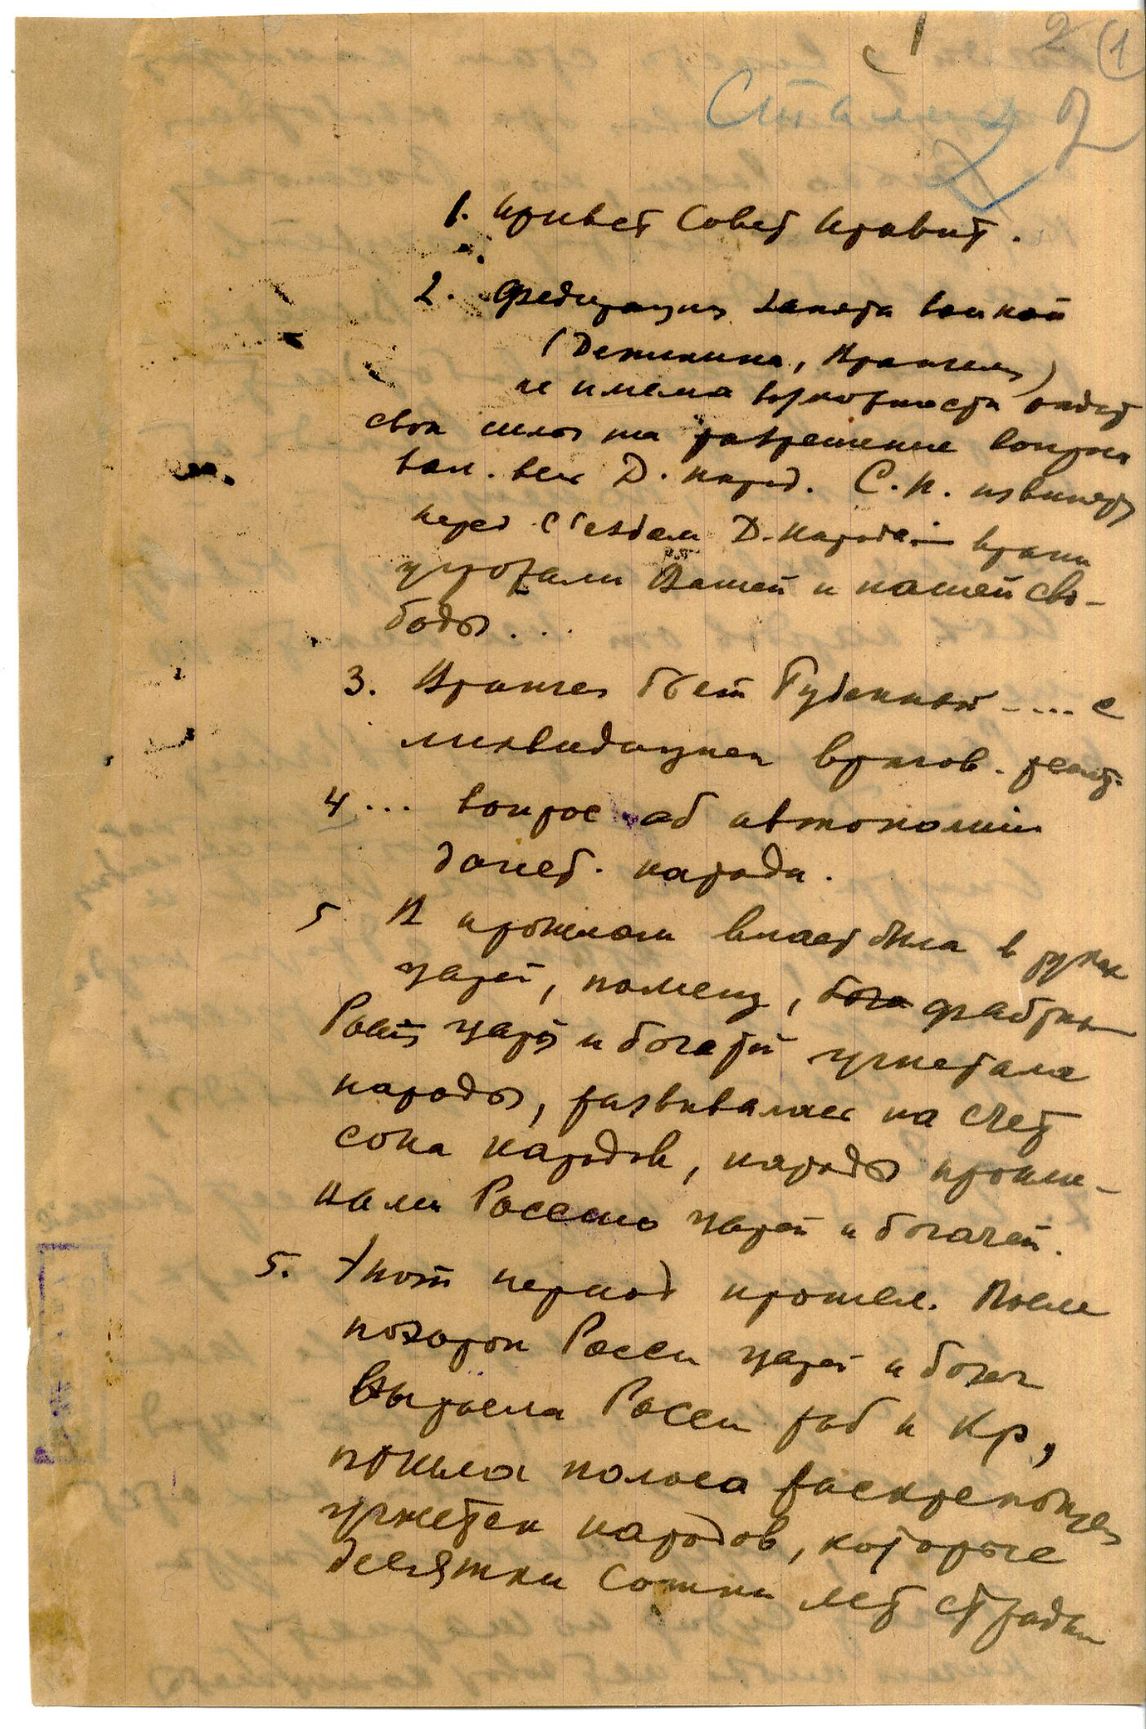 2 (1)
Сталин
2
1. Привет Совет Правит.
2. Федерация занята войной
(Деникина, Врангеля)
не имела возможности отдать
свои силы на разрешение вопроса
Д. народ. С. П.
перед с'ездом Д. народа — враги
угрожали Вашей и нашей сво-
боды...
3. Врангел бьет Буденный .... с
ликвидацией врагов.
4 ... вопрос об автономии
дагест. народа.
5 В прошлом власть была в руках
царей, помещ, фабрик
царей и богатей угнетала
народы, развивалась на счет
сока народов, народы прокли-
нали Россию царей и богачей.
5. Этот период прошел. После
похорон России царей и богач
выросла Росси раб и кр,
пришла полоса раскрепощен
угнетен народов, которые
десятки сотни лет страдали